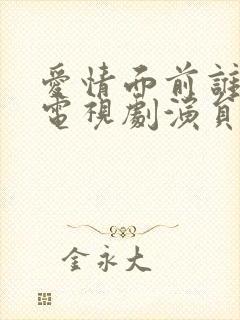 愛情面前誰
電視劇演員
金永大